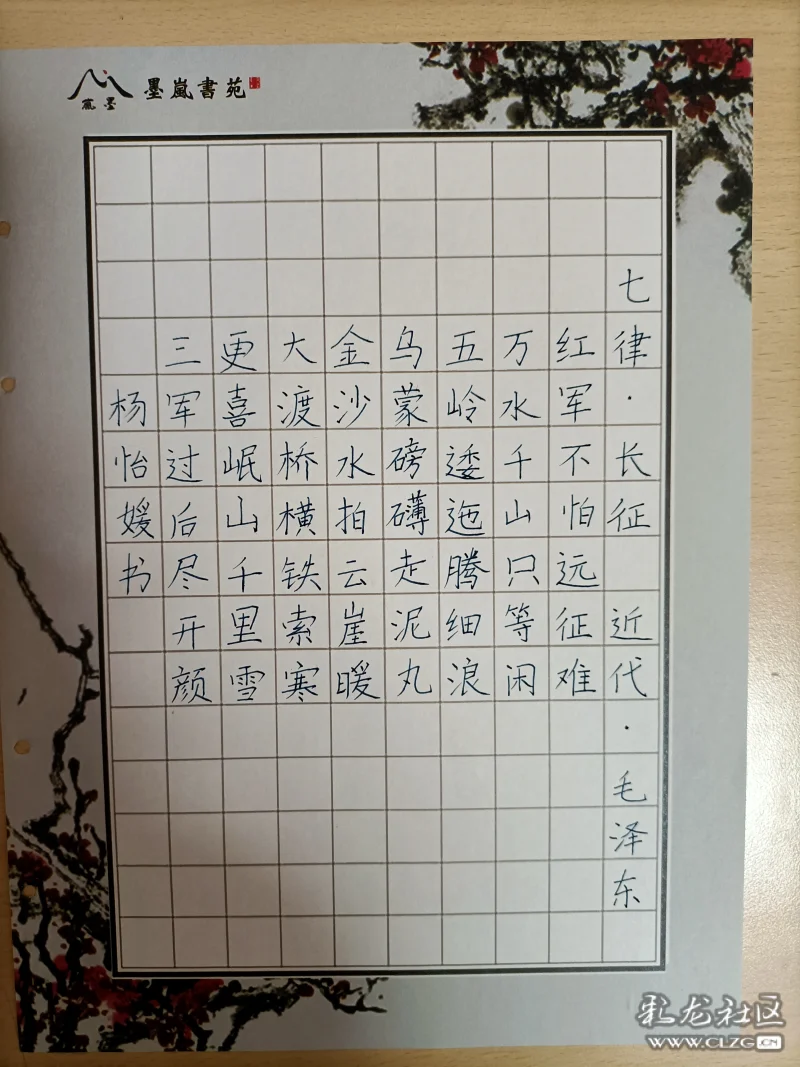 墨嵐書苑
嵐墨
七律·长征 近代·毛泽东
红军不怕远征难
万水千山只等闲
五岭逶迤腾细浪
乌蒙磅礴走泥丸
金沙水拍云崖暖
大渡桥横铁索寒
更喜岷山千里雪
三军过后尽开颜
杨怡媛书
彩龙社区
www.CLZG.CN